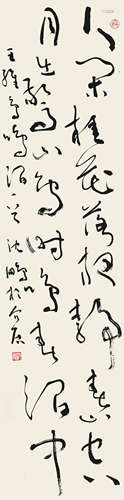 人闲桂花落夜静春山空
月出惊山鸟时鸣春涧中
王维鸟鸣涧 沈鹏于介居